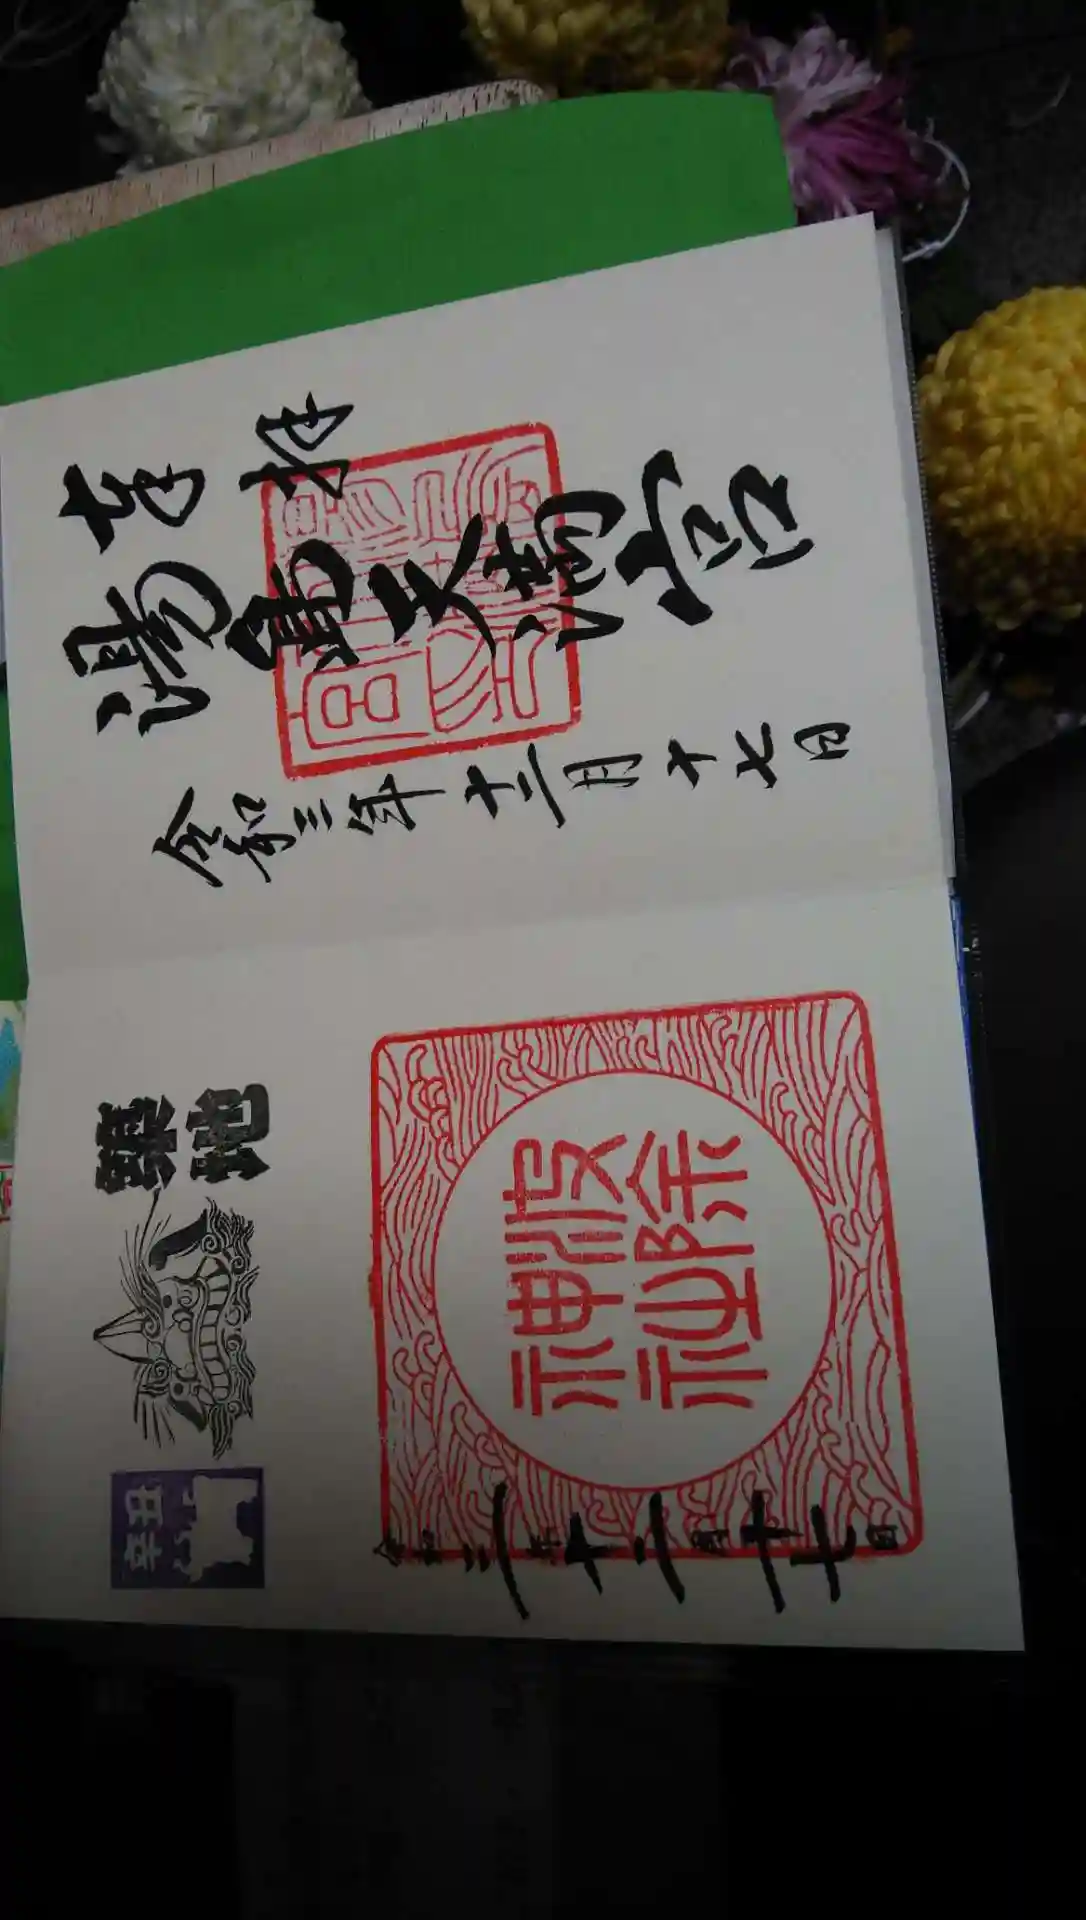 奉拝
湯島天満宮
令和三年十二月十七日
築地
波除
神社
辛丑
令和三年十二月十七日